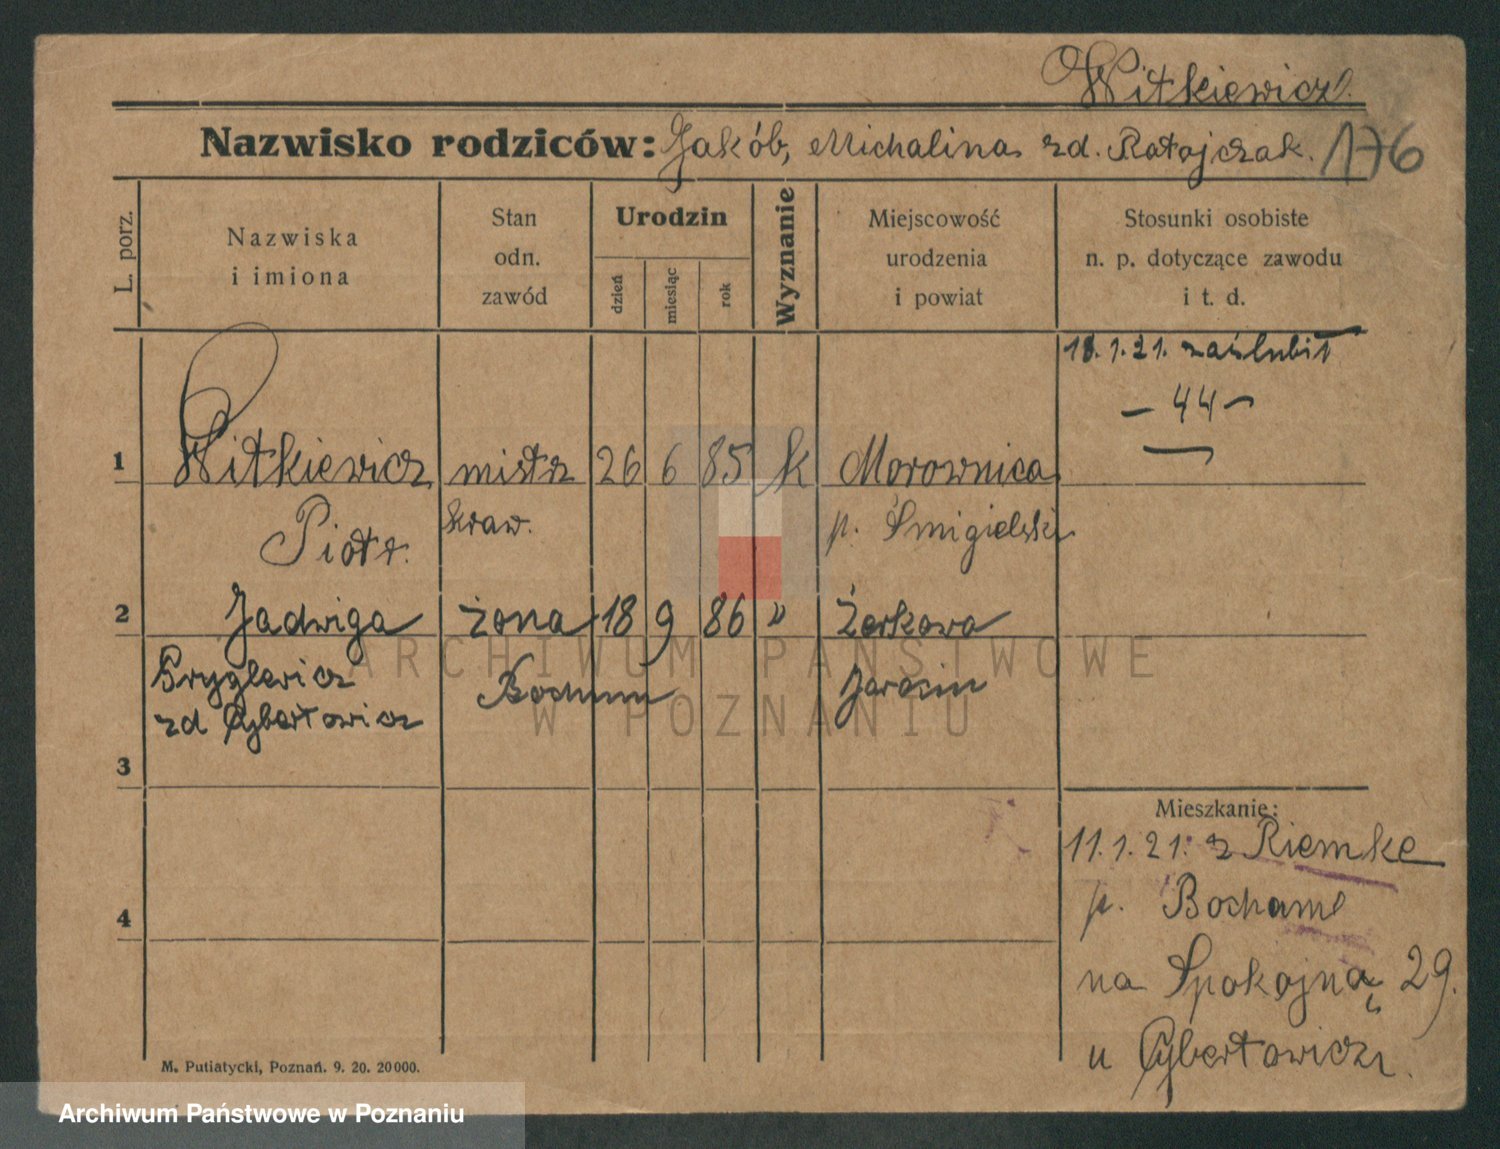 Witkiewicz.
Nazwisko rodziców: Jakób, Michalina zd. Ratajczak. 176
L. porz.
Nazwiska
i imiona
Stan
odn.
zawód
Urodzin
dzień
miesiąc
rok
Wyznanie
Miejscowość
urodzenia
i powiat
Stosunki osobiste
n. p. dotyczące zawodu
i t. d.
18.1.21. zaślubił
— 44 —
1 Witkiewicz mistrz 26 6 85 k Morownica
Piotr. kraw. p. Śmigielski
2 Jadwiga żona 18 9 86 " Żerkowa
Bryglewicz Bochum Jarocin
zd Cybertowicz
3
Mieszkanie:
11.1.21. z Riemke
p. Bochum
4
na Spokojną 29.
u Cybertowicz.
M. Putiatycki, Poznań. 9. 20. 20000.
ARCHIWUM PAŃSTWOWE
W POZNANIU
Archiwum Państwowe w Poznaniu